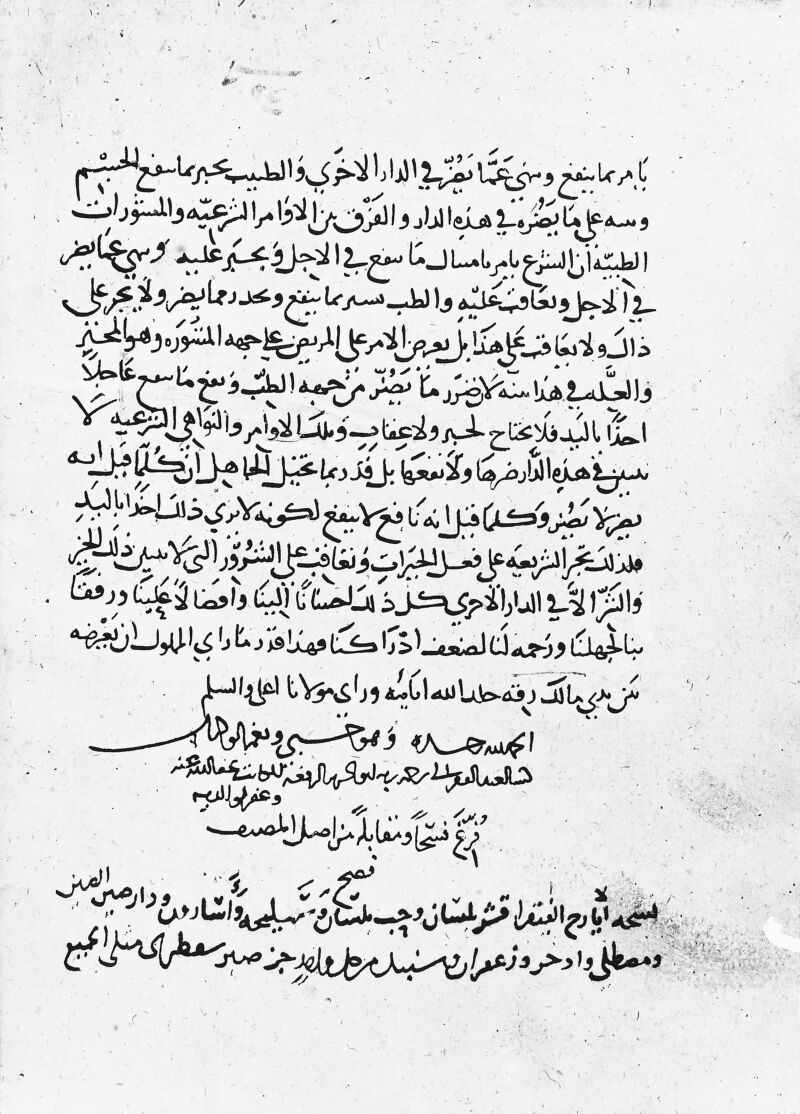 يامر بما ينفع وينهي عَمَّا يَضُرّ في الدار الاخرَي وَالطبيب يخبر بما ينفع الجسْم
وينبه علي مَا يَضُرّه في هَذِه الدار والفَرْق بين الاوَامر الشرعيّه والمشوَرات
الطبيّه ان الشرع يامر بامتثال مَا ينفع في الاجل وَيجبَر عليه وينهي عمَّا يضر
في الاجل ويعَاقب عَليْهِ والطب يشير بما ينفع ويحذر مما يضر ولا يجبر على
ذالك ولا يعَاقب عَلي هَذا بل يعرض الامر على المريض علي جهه المشُورَه وهو المخيّر
والعِلّه في هذا منه لان ضرَر مَا يَضُرّ من جهه الطبّ وَنفع مَا ينفع عَاجلاً
احذًا باليَد فلا يحتاج لجبر ولا عِقاب وَتلك الاوامر والنوَاهي الشرعيه لا
تتبين في هذِه الدَّار ضرهَا وَلا نفعهَا بل قَد ربما تخيّل الجَاهِل ان كُلّمَا قيل انه
يضر لا يَضُرّ وَكلما قيل انه نَافع لا ينفع لكونه لا يري ذلك احذًا باليَدِ
فلذلك تجبر الشريعَه علي فعل الخيَراتِ وَتعَاقب علي الشُرُورِ التي لا يتبين ذلك الخَير
وَالشرّ الاَّ في الدار الاخري كل ذلكَ احسَانًا الينَا وَافضَالاً عَلينَا ورفقًا
بنا لجهلنَا ورَحمه لَنا لضعف ادْرَاكنَا فهذا قدر مَا رَاي المملوك ان يَعْرضه
بين يدي مالك رقه خلد الله ايَّامَه وراي مولانا اعلى والسلم
الحمد لله وحده وَهو حَسبي ونعم الوكيل
وغفر لوالديه
فُرّغَ نَسْخًا ومقابلةً من اصل المصنف
فصح
نسخه ايَارج الفيقرا قشر بلسَان وحب بلسَان وَسَليخه وَاسَارون ودار صيني الصين
ومصطكي واذخر وزعفران وسنبل من كل واحدٍ جز صبر سقطري مثلي الجميع